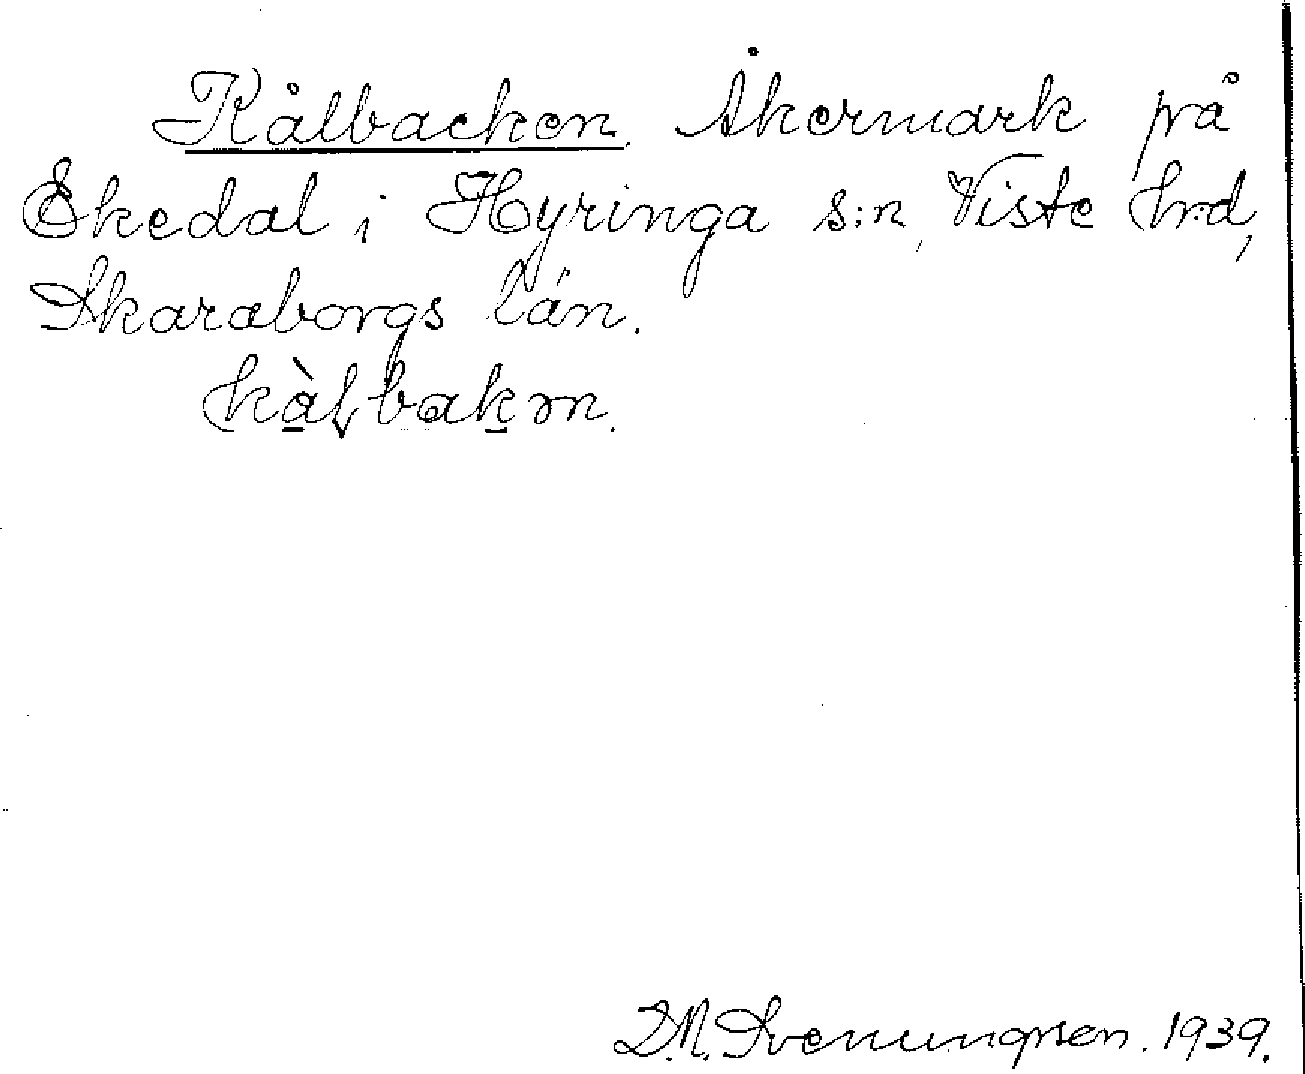 Kålbacken. Åkermark på
Ekedal i Hyringa s:n, Viste hrd,
Skaraborgs län.
kàłbakən.
D.N. Svenungsen. 1939.